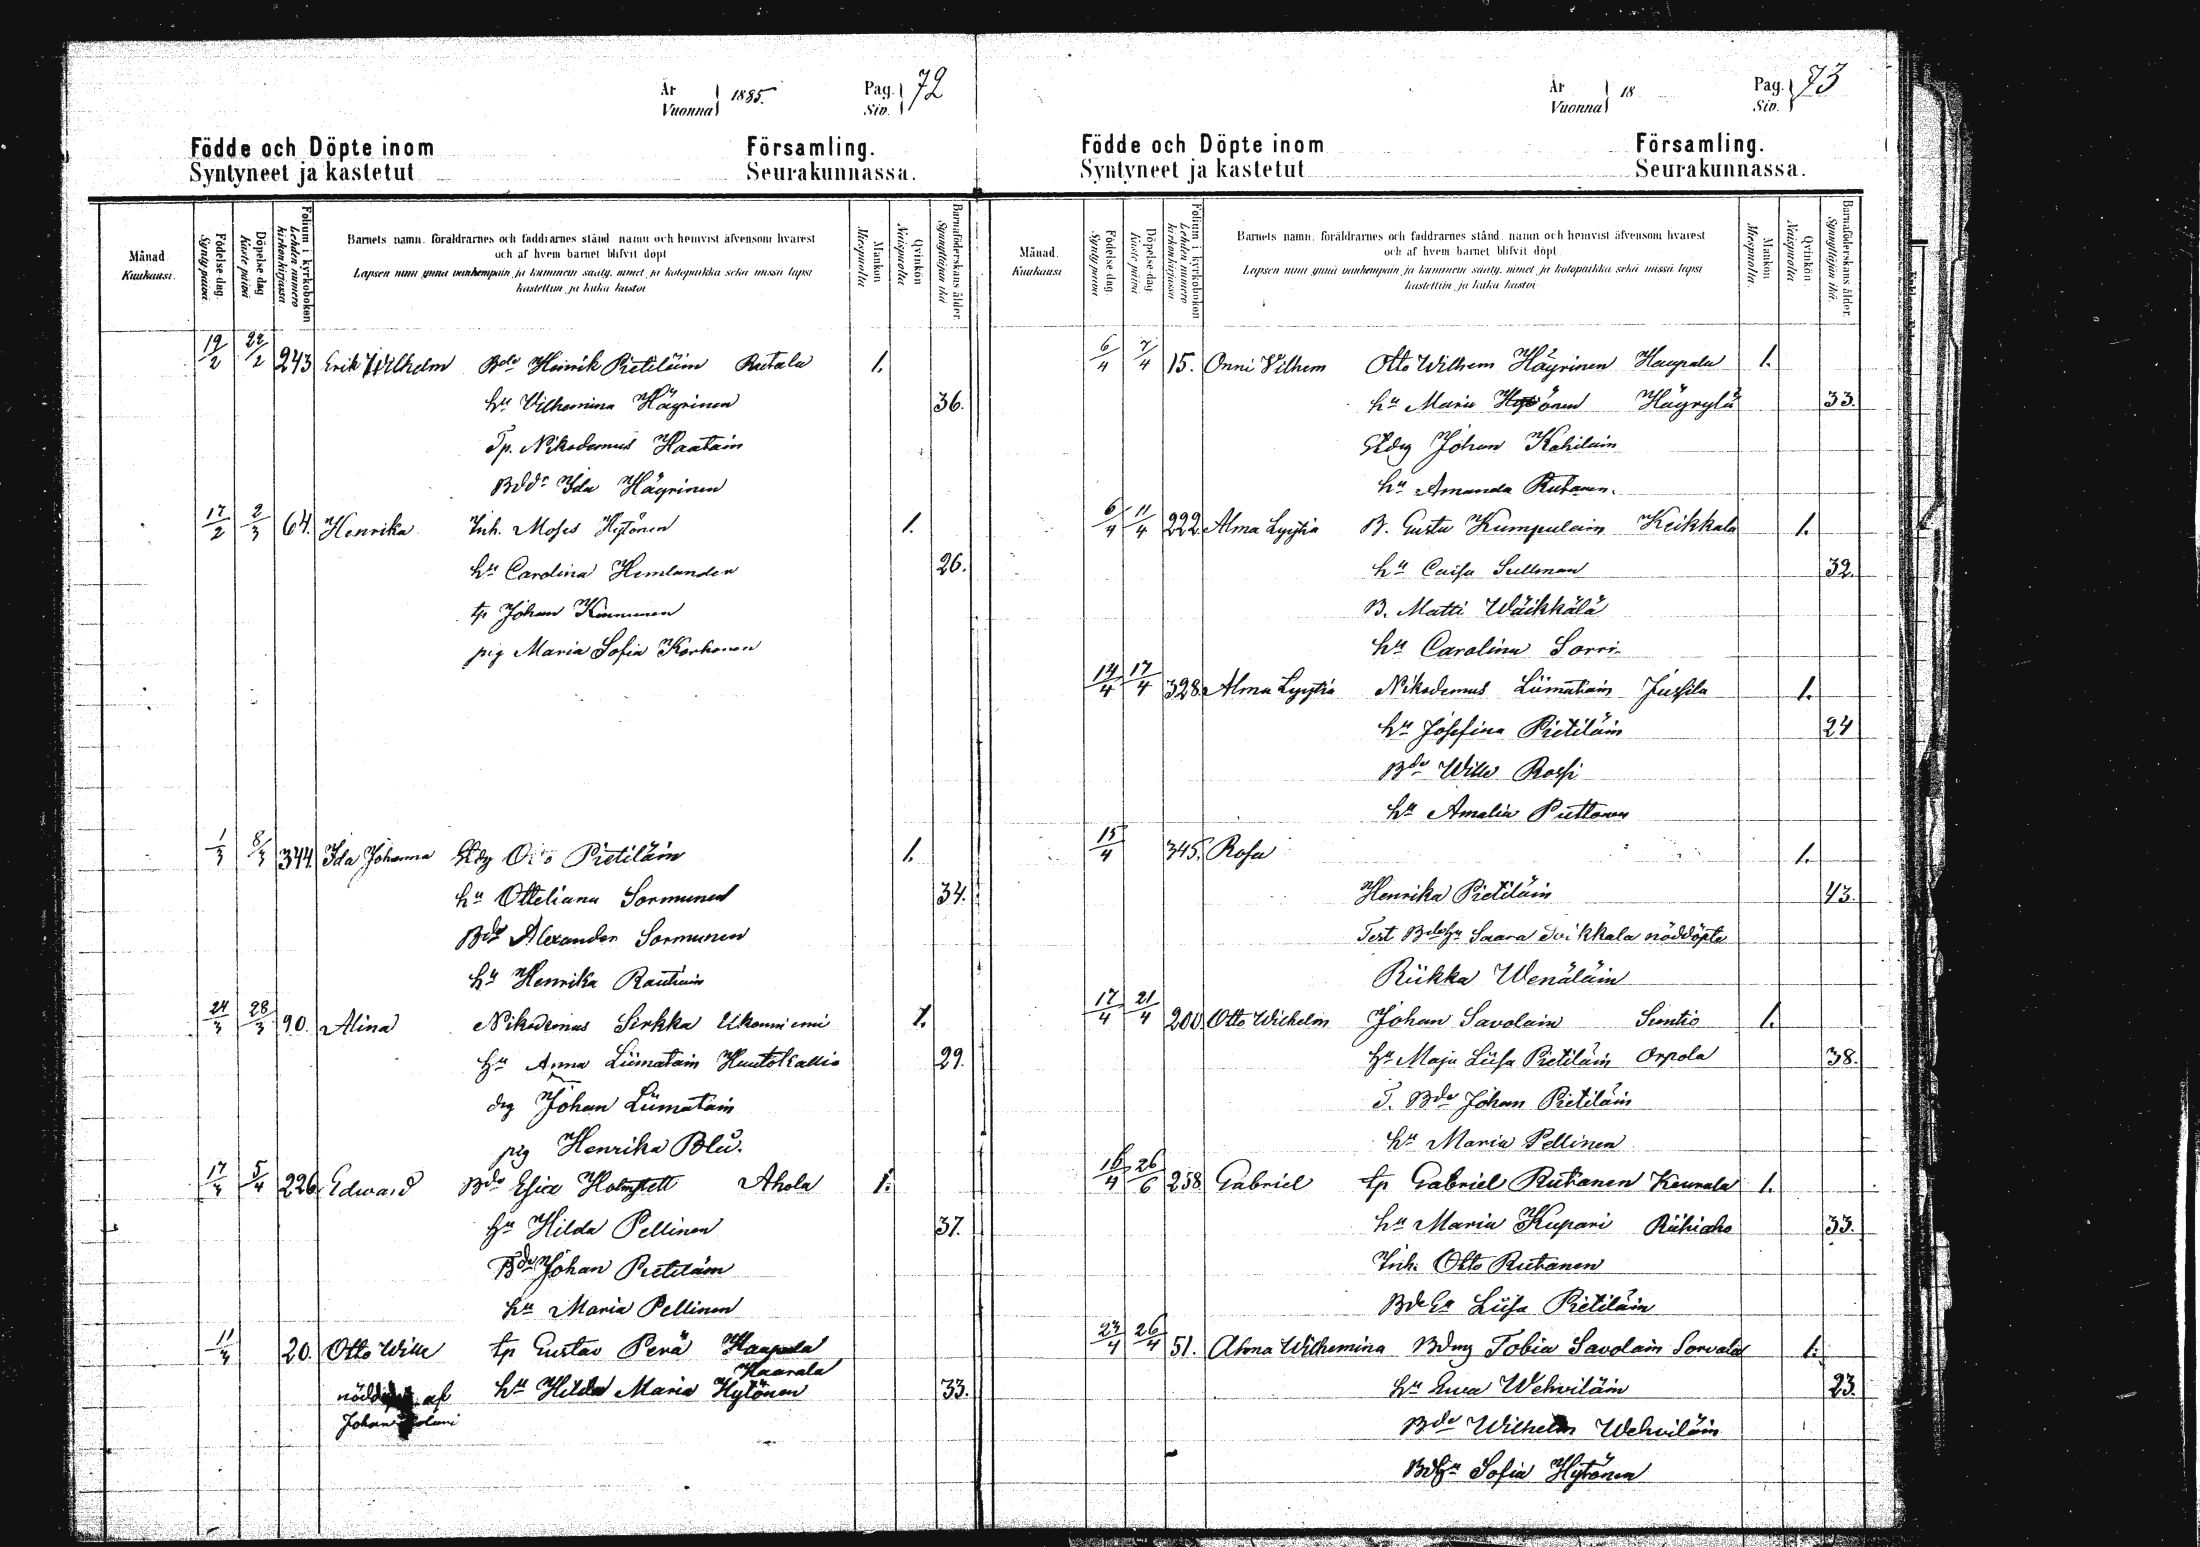 År
Vuonna } 1885.
Pag.
Siv. } 72
Födde och Döpte inom Församling.
Syntyneet ja kastetut Seurakunnassa.
Månad
Kuukausi.
Födelse dag
Synty päivä
Döpelse dag
Kaste päivä
Folium i kyrkoboken
Lehden numero kirkonkirjassa
Barnets namn, föräldrarnes och faddrarnes stånd, namn och hemvist äfvensom hvarest
och af hvem barnet blifvit döpt
Lapsen nimi ynnä vanhempain ja kummein sääty, nimet ja kotopaikka sekä missä lapsi
kastettiin ja kuka kastoi
Mankön
Miespuolta
Qvinkön
Naispuolta
Barnaföderskans ålder.
Synnyttäjän ikä
19/2 22/2 243 Erik Wilhelm Bde Heinrik Pietiläin Rutala 1.
hu Vilhemina Häyrinen 36.
Tp. Nikodemus Haatain
Bdd Ida Häyrinen
17/2 2/3 64. Henrika Inh. Moses Hytönen 1.
hu Carolina Hemlander 26.
tp Johan Kinnunen
pig Maria Sofia Korhonen
1/3 8/3 344. Ida Johanna Otto Pietiläin 1.
hu Otteliana Sormunen 34.
Bde Alexander Sormunen
hu Henrika Rautiain
24/3 28/3 90. Alina Nikodemus Sirkka Ukonniemi 1.
hu Anna Liimatain Hautokallio 29.
drg Johan Liimatain
pig Henrika Blå.
17/3 5/4 226 Edward Bde Esias Holmstett Ahola 1.
hu Hilda Pellinen 37.
Bde Johan Pietiläin
hu Maria Pellinen
11/3 20. Otto Wilh tp Gustav Perä Haapala
Haarala
af hu Hilda Maria Hytönen 33.
Johan
År
Vuonna } 18
Pag.
Siv. } 73
Födde och Döpte inom Församling.
Syntyneet ja kastetut Seurakunnassa.
Månad
Kuukausi.
Födelse dag
Synty päivä
Döpelse dag
Kaste päivä
Folium i kyrkoboken
Lehden numero kirkonkirjassa
Barnets namn, föräldrarnes och faddrarnes stånd, namn och hemvist äfvensom hvarest
och af hvem barnet blifvit döpt
Lapsen nimi ynnä vanhempain ja kummein sääty, nimet ja kotopaikka sekä missä lapsi
kastettiin ja kuka kastoi
Mankön
Miespuolta
Qvinkön
Naispuolta
Barnaföderskans ålder.
Synnyttäjän ikä
6/4 7/4 15. Onni Vilhem Otto Wilhem Häyrinen Haapala 1.
hu Maria Hytönen Häyrylä 33.
Johan Kahilain
hu Amanda Rutanen.
6/4 11/4 222 Alma Lyytia B. Gusta Kumpulain Keikkala 1.
hu Caisa Sellman 32.
B. Matti Wäikkälä
hu Carolina Sorri
14/4 17/4 328 Alma Lyytia Nikodemus Liimatain Jussila 1.
hu Josefina Pietiläin 24
Bde Wille Rossi
hu Amalia Puttonen
15/4 345. Rosa 1.
Henrika Pietiläin 43.
Test Bdehu Saara nöddöpte
Riikka Wenäläin
17/4 21/4 200 Otto Wilhelm Johan Savolain Suntio 1.
hu Maja Liisa Pietiläin Orpola 38.
T. Bde Johan Pietiläin
hu Maria Pellinen
16/4 26/6 258 Gabriel tp Gabriel Rutanen Keurala 1.
hu Maria Kupari Riihiaho 33.
Inh. Otto Rutanen
Bde hu Liisa Pietiläin
23/4 26/4 51. Alma Wilhemina Bdmg Tobia Savolain Sorvala 1.
hu Eva Wehviläin 23.
Bde Wilhelm Wehviläin
Bdhu Sofia Hytönen